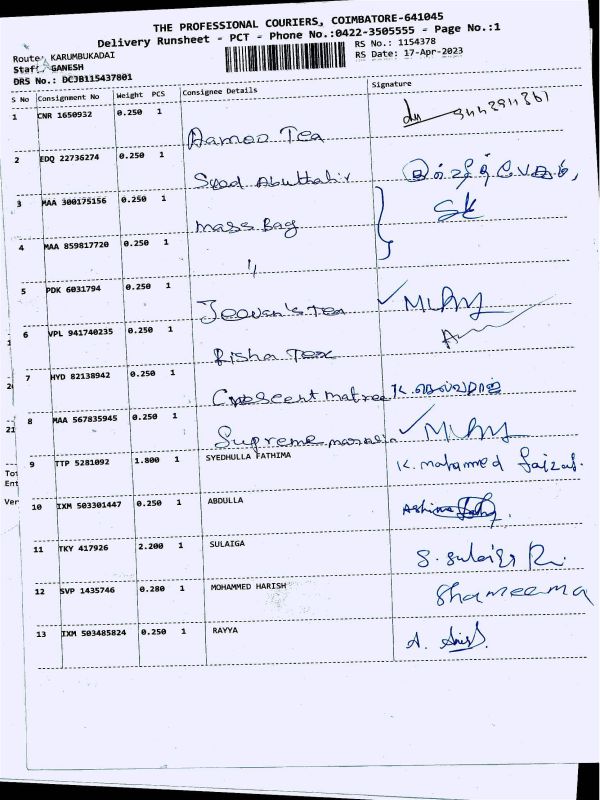 THE PROFESSIONAL COURIERS, COIMBATORE-641045
Delivery Runsheet - PCT - Phone No.:0422-3505555 - Page No.:1
Route: KARUMBUKADAI
RS No.: 1154378
Staff: GANESH
RS Date: 17-Apr-2023
DRS No.: DCJB115437801
S No Consignment No Weight PCS Consignee Details Signature
1 CNR 1650932 0.250 1
Tea
2 EDQ 22736274 0.250 1
Syed Abuttahir
3 MAA 300175156 0.250 1
mass Bag
4 MAA 859817720 0.250 1
"
5 PDK 6031794 0.250 1
Jeevan's Tea
6 VPL 941740235 0.250 1
Risha Tex
7 HYD 82138942 0.250 1
Crescent
8 MAA 567835945 0.250 1
Supreme
9 TTP 5281092 1.800 1 SYEDHULLA FATHIMA K. mohammed faizal.
10 IXM 503301447 0.250 1 ABDULLA
11 TKY 417926 2.200 1 SULAIGA S. Sulaiga
12 SVP 1435746 0.280 1 MOHAMMED HARISH Shameema
13 IXM 503485824 0.250 1 RAYYA A.
21
Tot
Ent
Ver